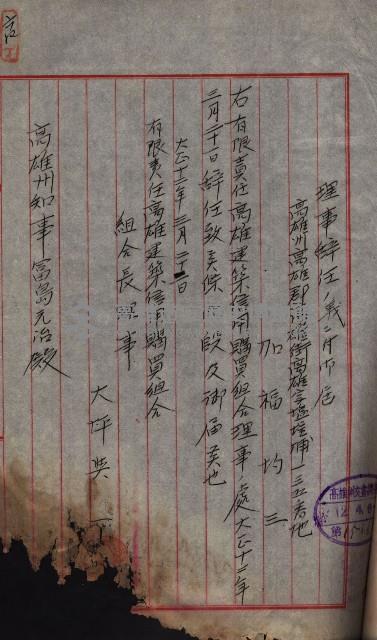 理事辞任ノ義ニ付御届
高雄州高雄郡高雄街高雄字塩埕埔一三五番地
加福均三
右有限責任高雄建築信用購買組合理事ノ處大正十二年
三月二十日辞任致候條此段及御届候也
大正十二年三月二十二日
有限責任高雄建築信用購買組合
組合長理事
大坪
高雄州知事富島元治殿
12.4.